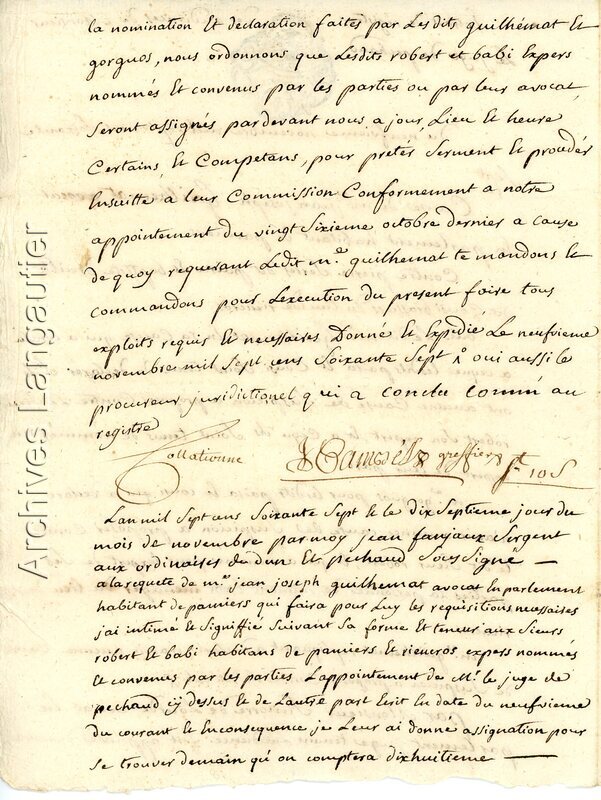 la nomination Et declaration faites par Lesdits guilhemat Et
gorguos, nous ordonnons que Lesdits robert et babi Expers
nommés Et convenus par les parties ou par leur avocat,
Seront assignés pardevant nous a jour, Lieu et heure
Certains, Et Competans, pour pretér Serment Et procedér
Ensuitte a leur Commission Conformement a notre
appointement du vingt Sixieme octobre dernier a cause
de quoy requerant Ledit mr. guilhemat te mandons Et
commandons pour Lexecution du present faire tous
exploits requis Et necessaires Donné et Expedié Le neufvieme
novembre mil Sept cens Soixante Sept oui aussi le
procureur juridictionel qui a conclu Comme au
registre
Collationné
greffier
10 S
Lan mil Sept cens Soixante Sept Et le dix Septieme jour du
mois de novembre par moy jean fanjaux Sergent
aux ordinaires du dun Et pechaud Soussigné
a la requete de mr. jean joseph guilhemat avocat En parlement
habitant de pamiers qui faira pour Luy les requisitions necessaires
j'ai intimé Et Signiffié Suivant Sa forme Et teneur aux Sieurs
robert Et babi habitans de pamiers et rieucros, expers nommés
Et convenus par les parties Lappointement de Mr. le juge de
pechaud cy dessus Et de Lautre part Ecrit En date du neufvieme
du courant Et En consequence je Leur ai donné assignation pour
Se trouver demain qu'on comptera dixhuitieme
Archives Langautier